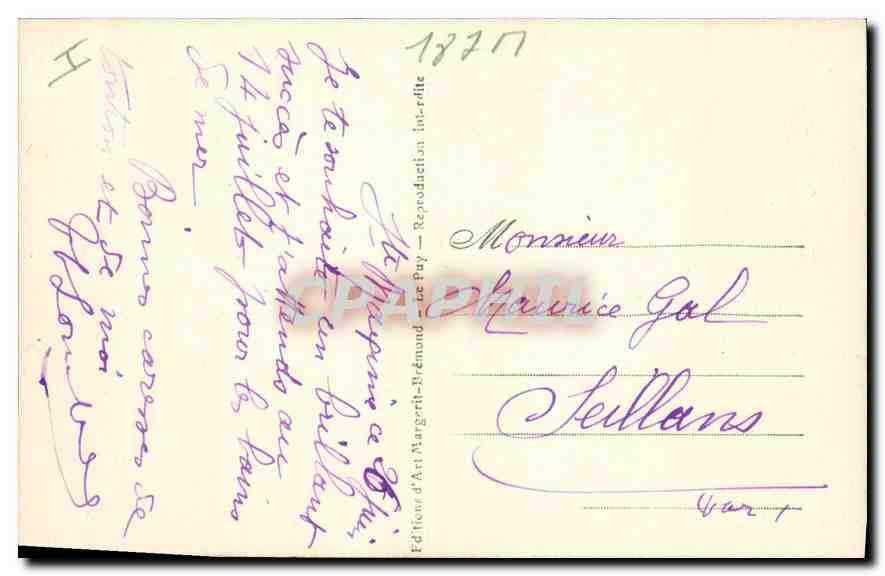 Ste Maxime ce 26 Juin
Je te souhaite un brillant
succès et t'attends au
14 Juillet pour les bains
de mer.
Bonnes caresses de
tonton et de moi
Editions d'Art Margerit-Brémond - Le Puy — Reproduction Interdite
Monsieur
Maurice Gal
Seillans
Var
CPAPHIL